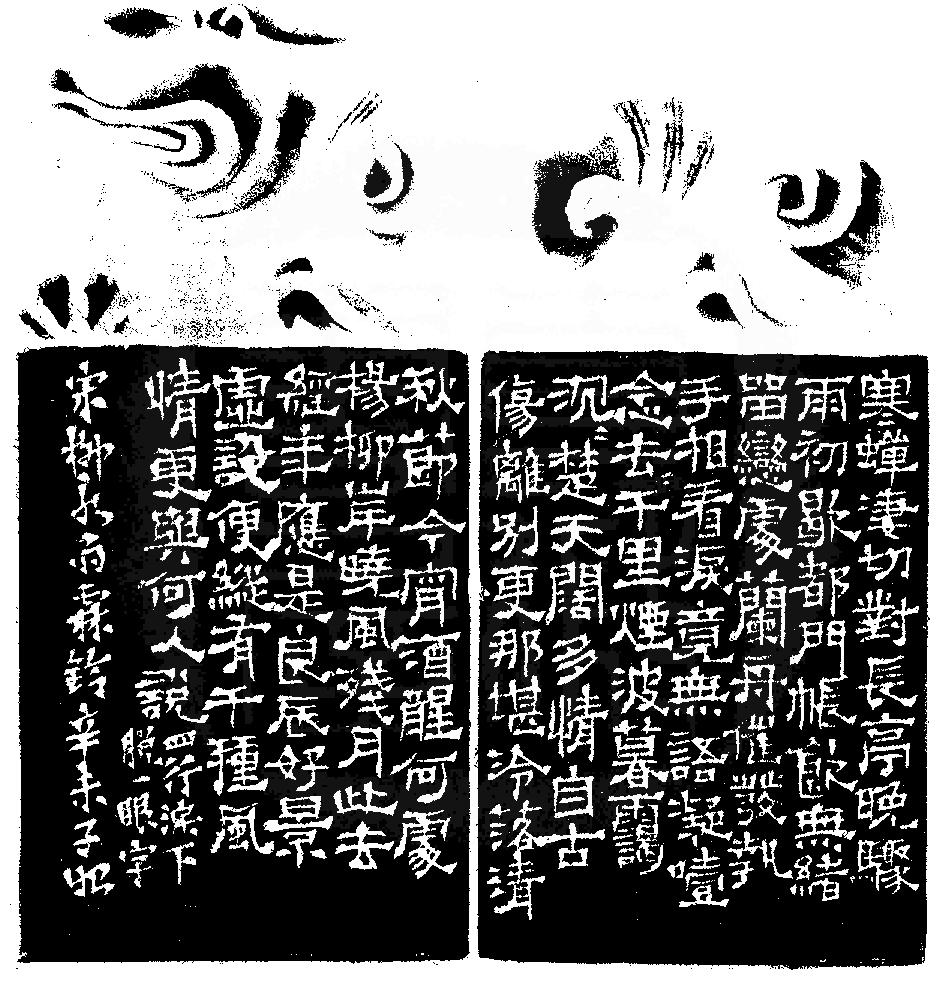 寒蟬淒切對長亭晚驟
雨初歇都門帳飲無緒
留戀處蘭舟催發執
手相看淚竟無語凝噎
念去千里煙波暮靄
沉楚天闊多情自古
傷離別更那堪冷落清
秋節今宵酒醒何處
楊柳岸曉風殘月此去
經年應是良辰好景
虛設便縱有千種風
情更與何人說
四行淚下
脫一眼字
宋柳永雨霖鈴辛未子昭